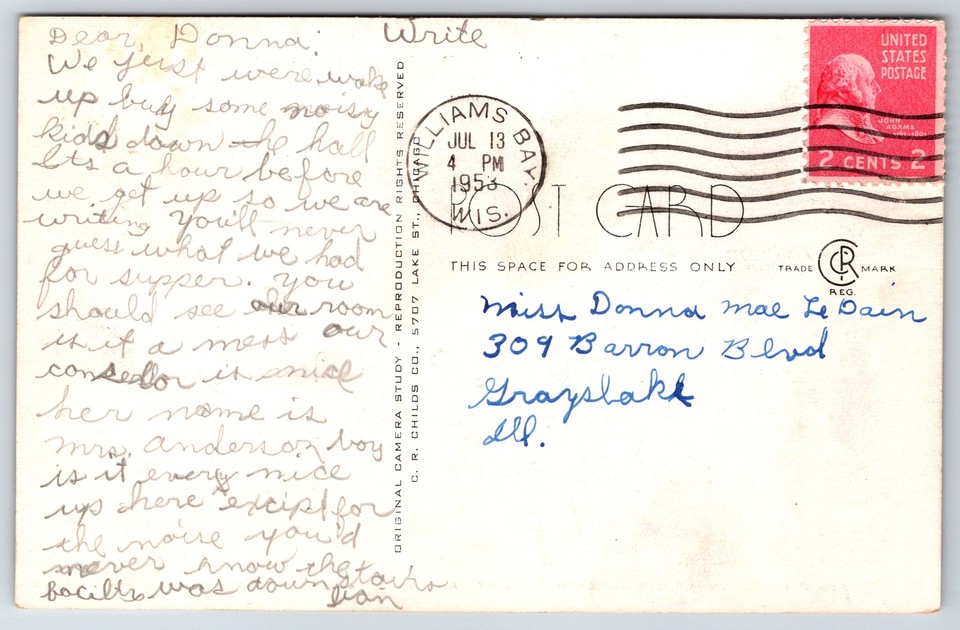 Dear, Donna: Write
We just were woke
up buy some noisy
kidd down the hall
Its a hour before
we get up so we are
writing You'll never
guess what we had
for supper. You
should see our room
is it a mess our
conselor is nice
her name is
Mrs. anderson boy
is it every nice
up here except for
the noise you'd
never know the
was downstairs
ORIGINAL CAMERA STUDY - REPRODUCTION RIGHTS RESERVED
C. R. CHILDS CO., 5707 LAKE ST., CHICAGO
WILLIAMS BAY.
JUL 13
4 PM
1953
WIS.
UNITED
STATES
POSTAGE
JOHN
ADAMS
2 CENTS 2
POST CARD
THIS SPACE FOR ADDRESS ONLY
TRADE CR MARK
REG.
Miss Donna Mae Le Dain
309 Barron Blvd
Grayslake
Ill.